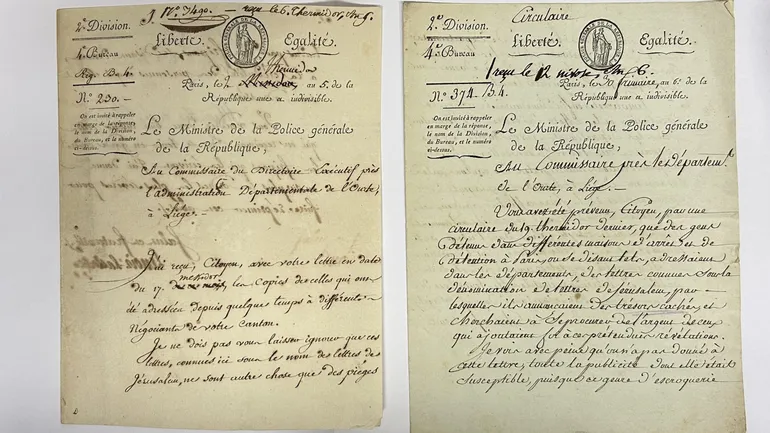 2e Division.
4e Bureau
N.° 230.
On est invité à rappeler
en marge de la réponse,
le nom de la Division,
du Bureau, et le numéro
ci-dessus.
reçu le 6. Thermidor, An 5.
Liberté.
Egalité.
Thermidor
Paris, le 2 Messidor, an 5. de la
République une et indivisible.
Le Ministre de la Police générale
de la République,
Au Commissaire du Directoire Exécutif près
l'administration Départementale de l'Ourte,
à Liège.
J'ai reçu, Citoyen, avec votre lettre en date
messidor
du 17. les Copies de celles qui ont
été adressées depuis quelque temps à différents
Négociants de votre Canton.
Je ne dois pas vous laisser ignorer que ces
lettres, connues ici sous le nom des lettres de
Jérusalem, ne sont autre chose que des pièges
Circulaire
2e Division.
4e Bureau
N.° 374. B.4.
On est invité à rappeler
en marge de la réponse,
le nom de la Division,
du Bureau, et le numéro
ci-dessus.
Liberté.
Egalité.
reçu le 12 nivose, An 6.
Paris, le frimaire, an 6.e de la
République une et indivisible.
Le Ministre de la Police générale
de la République,
Au Commissaire près le départem.t
de l'Ourte, à Liège.
Vous avez été prévenu, Citoyen, par une
circulaire du 19 thermidor dernier, que des gens
détenus dans différentes maisons d'arrêt et de
détention à Paris, ou se disant tels, adressaient
dans les départements, des lettres connues sous la
dénomination de lettres de Jérusalem, par
lesquelles ils annoncaient des trésors cachés, et
cherchaient à se procurer de l'argent de ceux
qui ajoutaient foi à ces prétendues révélations.
Je vois avec peine qu'on n'a pas donné à
cette lettre, toute la publicité dont elle était
susceptible, puisque ce genre d'escroquerie